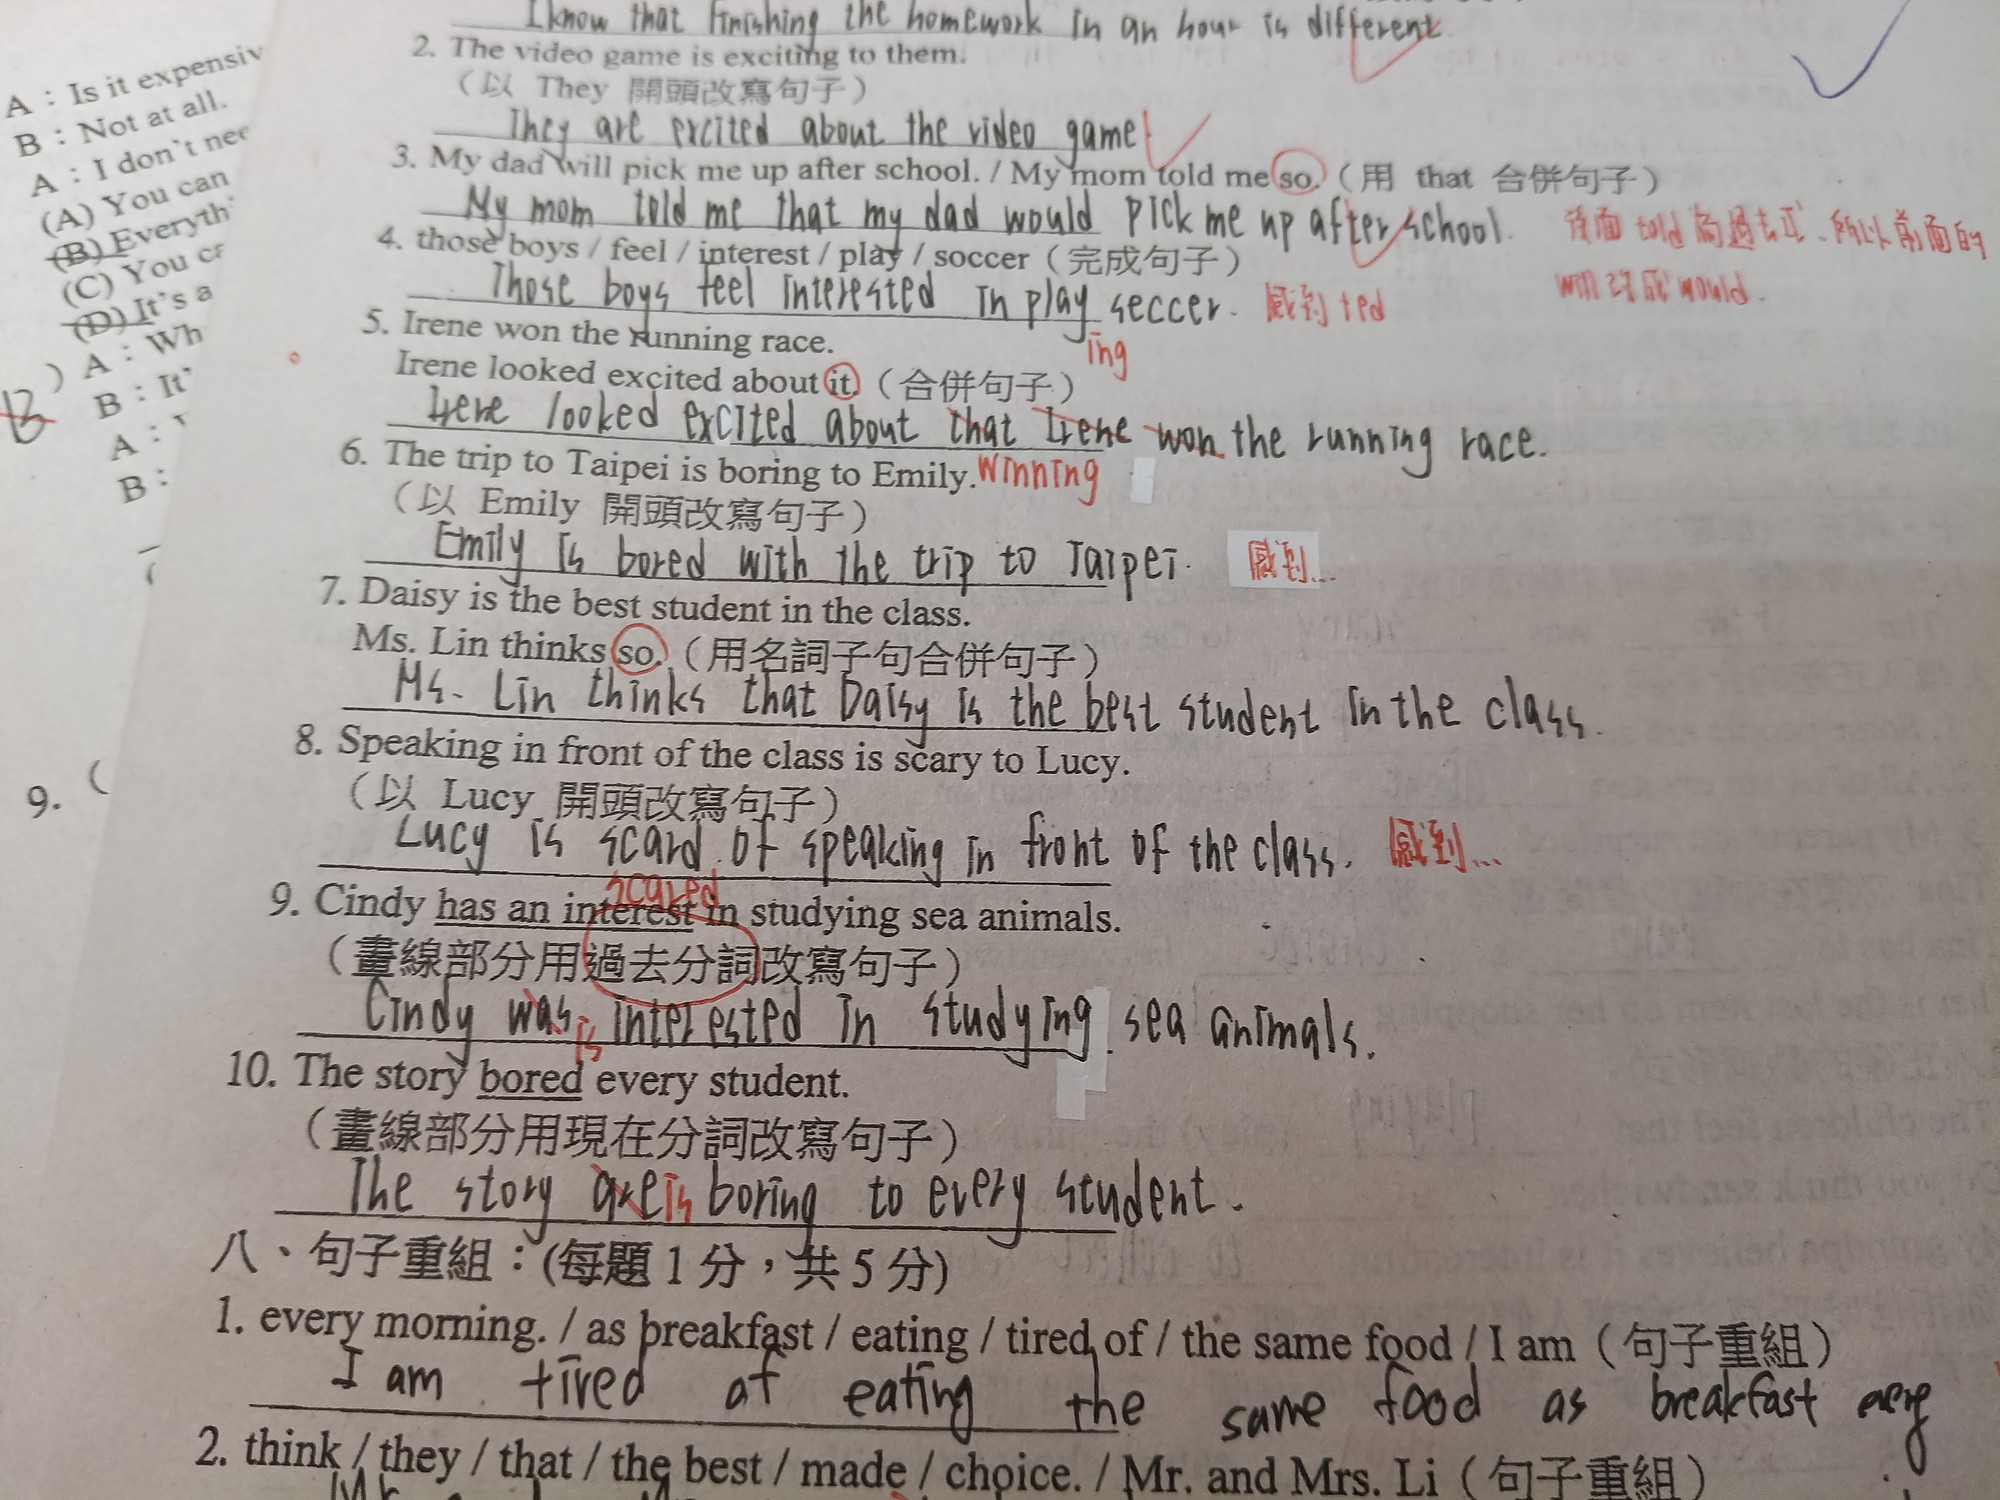 I know that finishing the homework in an hour is different.
2. The video game is exciting to them.
(以 They 開頭改寫句子)
They are excited about the video game.
3. My dad will pick me up after school. / My mom told me so.(用 that 合併句子)
My mom told me that my dad would pick me up after school.
後面 told 為過去式、所以前面的
will 改成 would.
4. those boys / feel / interest / play / soccer(完成句子)
Those boys feel interested in play seccer. 感到 ted
ing
5. Irene won the running race.
Irene looked excited about it.(合併句子)
Irene looked excited about that Irene won the running race.
winning
6. The trip to Taipei is boring to Emily.
(以 Emily 開頭改寫句子)
Emily is bored with the trip to Taipei. 感到...
7. Daisy is the best student in the class.
Ms. Lin thinks so.(用名詞子句合併句子)
Ms. Lin thinks that Daisy is the best student in the class.
8. Speaking in front of the class is scary to Lucy.
(以 Lucy 開頭改寫句子)
Lucy is scard of speaking in front of the class. 感到...
scared
9. Cindy has an interest in studying sea animals.
(畫線部分用過去分詞改寫句子)
Cindy was is interested in studying sea animals.
10. The story bored every student.
(畫線部分用現在分詞改寫句子)
The story are is boring to every student.
八、句子重組:(每題 1 分,共 5 分)
1. every morning. / as breakfast / eating / tired of / the same food / I am(句子重組)
I am tired of eating the same food as breakfast
2. think / they / that / the best / made / choice. / Mr. and Mrs. Li(句子重組)
A:Is it expensiv
B:Not at all.
A:I don't nee
(A) You can
(B) Everyth
(C) You ca
(D) It's a
) A:Wh
B:It'
A:
B:
9. (